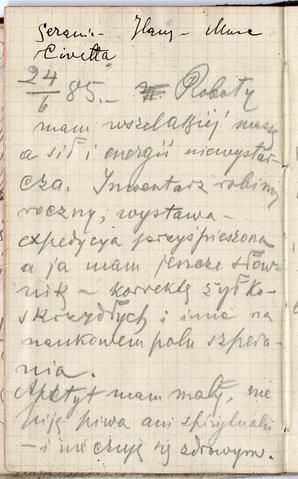 Gerani - Ylang - Mure
Civetta
24/6 85. - Roboty
mam wszelakiej masę
a sił i energii niewystar
cza. Inwentarz robimy
roczny, wystawa -
expedycya przyśpieszona
a ja mam jeszcze słow
nik - korrektę żyłko-
skrzydłych i inne na
naukowem polu szpera-
nia.
Apetyt mam mały, nie
piję piwa ani spirytuali
- i nie czuję się zdrowym.